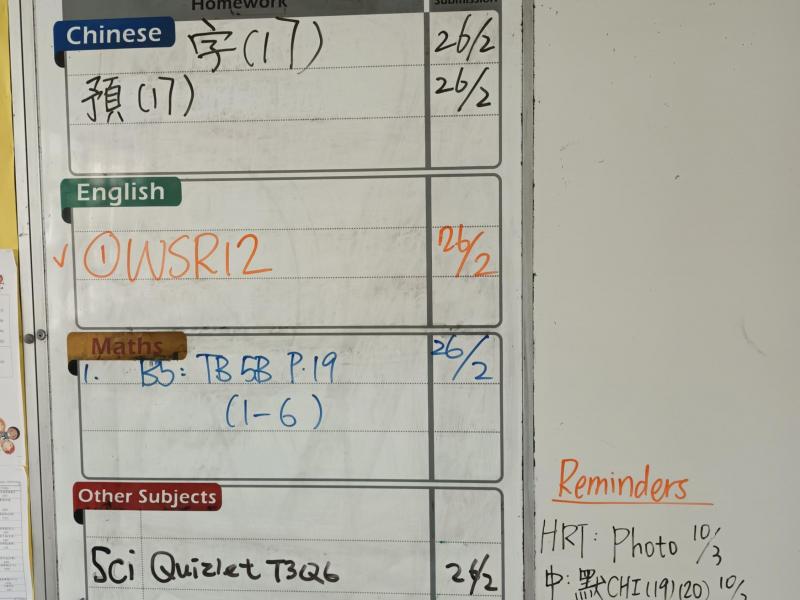 Homework Submission
Chinese
字(17) 26/2
預(17) 26/2
English
✓ ①WSR12 26/2
Maths 26/2
1. B5: TB 5B P.19
(1-6)
Other Subjects
Sci Quizlet T3Q6 24/2
Reminders
HRT: Photo 10/3
中: 默CHI(19)(20)